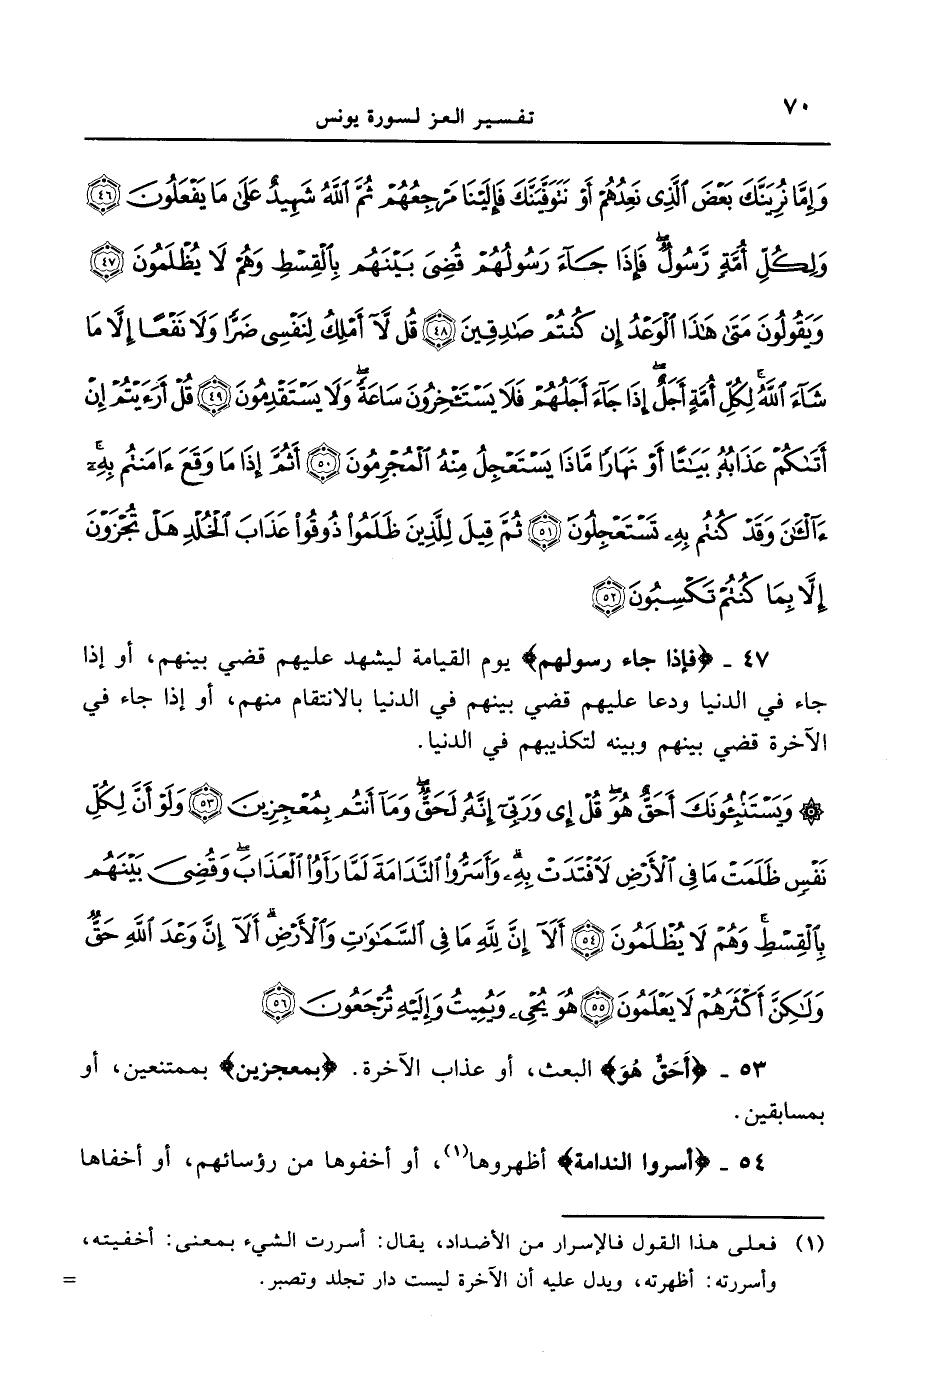 ٧٠
تفسير العز لسورة يونس
وَإِمَّا نُرِيَنَّكَ بَعْضَ ٱلَّذِى نَعِدُهُمْ أَوْ نَتَوَفَّيَنَّكَ فَإِلَيْنَا مَرْجِعُهُمْ ثُمَّ ٱللَّهُ شَهِيدٌ عَلَىٰ مَا يَفْعَلُونَ ﴿٤٦﴾
وَلِكُلِّ أُمَّةٍ رَّسُولٌ ۖ فَإِذَا جَآءَ رَسُولُهُمْ قُضِىَ بَيْنَهُم بِٱلْقِسْطِ وَهُمْ لَا يُظْلَمُونَ ﴿٤٧﴾
وَيَقُولُونَ مَتَىٰ هَٰذَا ٱلْوَعْدُ إِن كُنتُمْ صَٰدِقِينَ ﴿٤٨﴾ قُل لَّآ أَمْلِكُ لِنَفْسِى ضَرًّا وَلَا نَفْعًا إِلَّا مَا
شَآءَ ٱللَّهُ ۗ لِكُلِّ أُمَّةٍ أَجَلٌ ۚ إِذَا جَآءَ أَجَلُهُمْ فَلَا يَسْتَـْٔخِرُونَ سَاعَةً ۖ وَلَا يَسْتَقْدِمُونَ ﴿٤٩﴾ قُلْ أَرَءَيْتُمْ إِنْ
أَتَىٰكُمْ عَذَابُهُۥ بَيَٰتًا أَوْ نَهَارًا مَّاذَا يَسْتَعْجِلُ مِنْهُ ٱلْمُجْرِمُونَ ﴿٥٠﴾ أَثُمَّ إِذَا مَا وَقَعَ ءَامَنتُم بِهِۦٓ ۚ
ءَآلْـَٰٔنَ وَقَدْ كُنتُم بِهِۦ تَسْتَعْجِلُونَ ﴿٥١﴾ ثُمَّ قِيلَ لِلَّذِينَ ظَلَمُوا۟ ذُوقُوا۟ عَذَابَ ٱلْخُلْدِ هَلْ تُجْزَوْنَ
إِلَّا بِمَا كُنتُمْ تَكْسِبُونَ ﴿٥٢﴾
٤٧ ـ ﴿فإذا جاء رسولهم﴾ يوم القيامة ليشهد عليهم قضي بينهم، أو إذا
جاء في الدنيا ودعا عليهم قضي بينهم في الدنيا بالانتقام منهم، أو إذا جاء في
الآخرة قضي بينهم وبينه لتكذيبهم في الدنيا.
۞ وَيَسْتَنۢبِـُٔونَكَ أَحَقٌّ هُوَ ۖ قُلْ إِى وَرَبِّىٓ إِنَّهُۥ لَحَقٌّ ۖ وَمَآ أَنتُم بِمُعْجِزِينَ ﴿٥٣﴾ وَلَوْ أَنَّ لِكُلِّ
نَفْسٍ ظَلَمَتْ مَا فِى ٱلْأَرْضِ لَٱفْتَدَتْ بِهِۦ ۗ وَأَسَرُّوا۟ ٱلنَّدَامَةَ لَمَّا رَأَوُا۟ ٱلْعَذَابَ ۖ وَقُضِىَ بَيْنَهُم
بِٱلْقِسْطِ ۚ وَهُمْ لَا يُظْلَمُونَ ﴿٥٤﴾ أَلَآ إِنَّ لِلَّهِ مَا فِى ٱلسَّمَٰوَٰتِ وَٱلْأَرْضِ ۗ أَلَآ إِنَّ وَعْدَ ٱللَّهِ حَقٌّ
وَلَٰكِنَّ أَكْثَرَهُمْ لَا يَعْلَمُونَ ﴿٥٥﴾ هُوَ يُحْىِۦ وَيُمِيتُ وَإِلَيْهِ تُرْجَعُونَ ﴿٥٦﴾
٥٣ ـ ﴿أَحَقٌّ هُوَ﴾ البعث، أو عذاب الآخرة. ﴿بمعجزين﴾ بممتنعين، أو
بمسابقين.
٥٤ ـ ﴿أسروا الندامة﴾ أظهروها(١)، أو أخفوها من رؤسائهم، أو أخفاها
(١) فعلى هذا القول فالإسرار من الأضداد، يقال: أسررت الشيء بمعنى: أخفيته،
وأسررته: أظهرته، ويدل عليه أن الآخرة ليست دار تجلد وتصبر. =